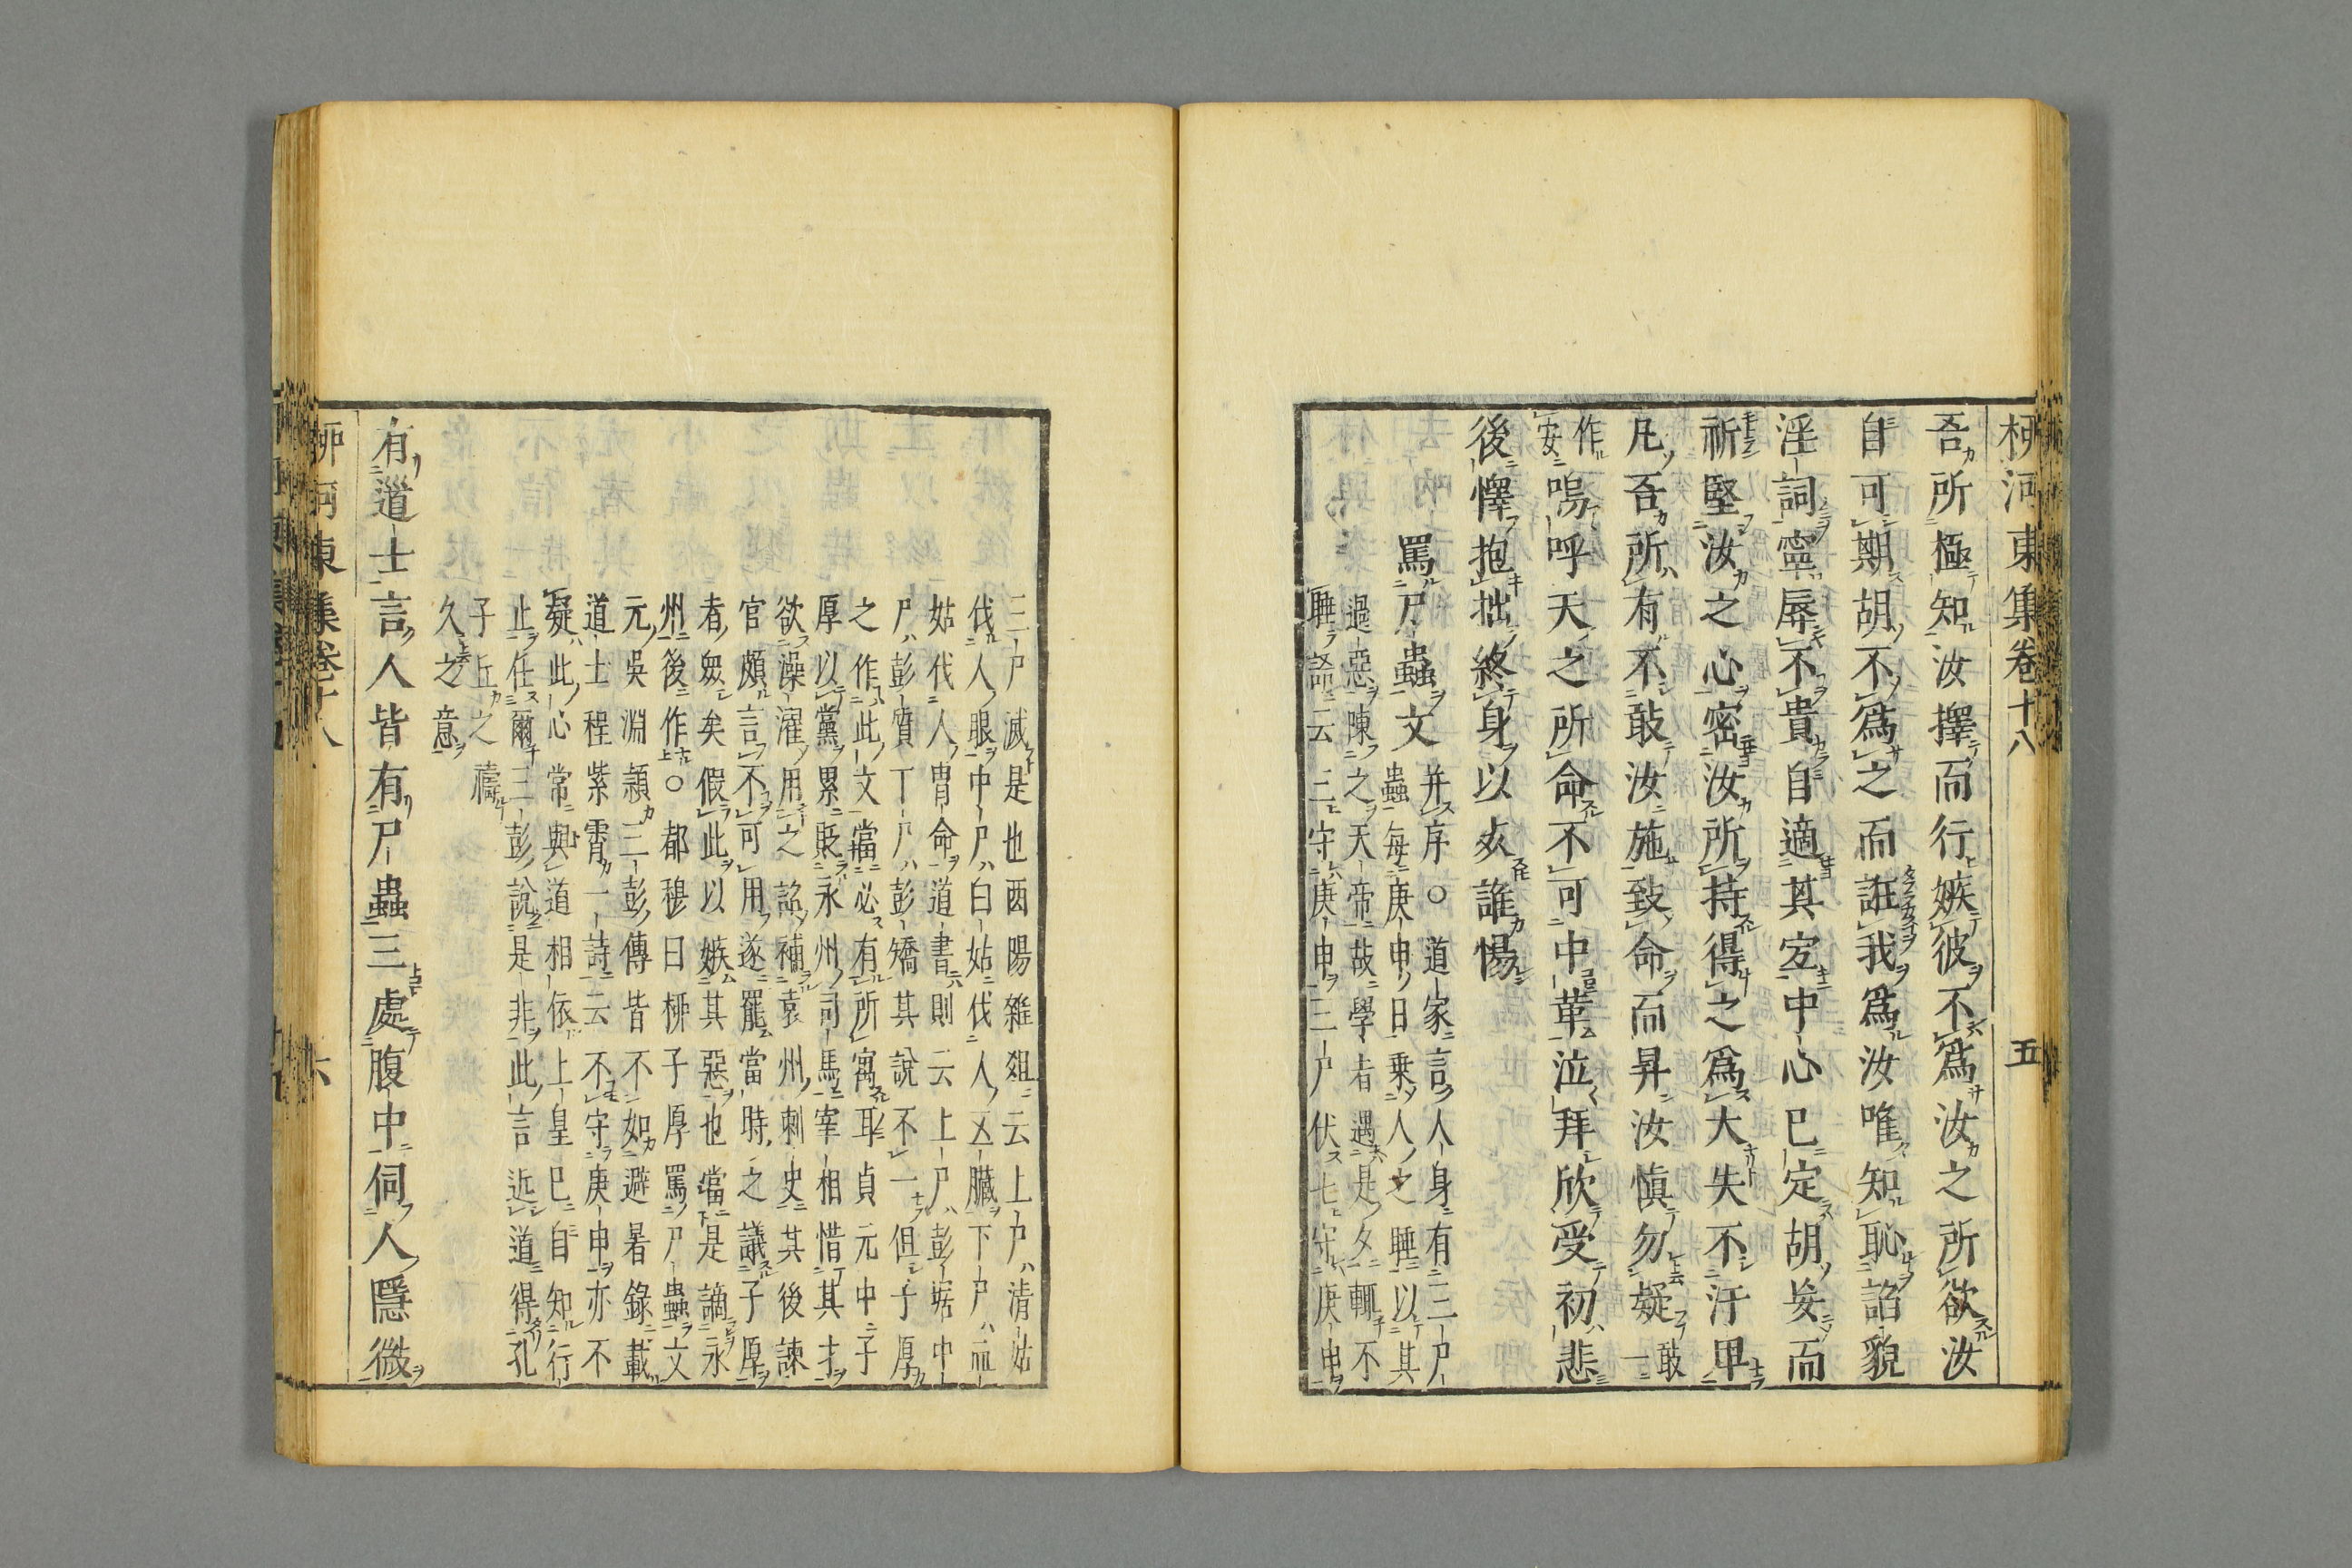 柳河東集卷十八 五
吾所極知汝擇而行嫉彼不爲汝之所欲汝
自可期胡不爲之而誑我爲汝唯知恥諂貌
淫詞寧辱不貴自適其宜中心已定胡妄而
祈堅汝之心密汝所持得之爲大失不汙卑
凡吾所有不敢汝施致命而昇汝愼勿疑敢一
作安嗚呼天之所命不可中革泣拜欣受初悲
後懌抱拙終身以死誰惕
罵尸蟲文并序○道家言人身有三尸
蟲每庚申日乗人之睡以其
過惡陳之天帝故學者遇是夕輒不
睡語云三守庚申三尸伏七守庚申
三尸滅是也酉陽雜俎云上尸清姑
伐人眼中尸白姑伐人五臟下尸血
姑伐人胃命道書則云上尸彭琚中
尸彭質下尸彭矯其說不一但子厚
之作此文當必有所寓耳貞元中子
厚以黨累貶永州司馬宰相惜其才
欲澡濯用之詔補袁州刺史其後諫
官頗言不可用遂罷當時之議子厚
者衆矣假此以嫉其惡也當是謫永
州後作○都穆曰柳子厚罵尸蟲文
元吳淵頴三彭傳皆不如避暑錄載
道士程紫霄一詩云不守庚申亦不
疑此心常與道相依上皇已自知行
止任爾三彭說是非此言近道得孔
子丘之禱
久之意
有道士言人皆有尸蟲三處腹中伺人隱微
柳河東集卷十八 六